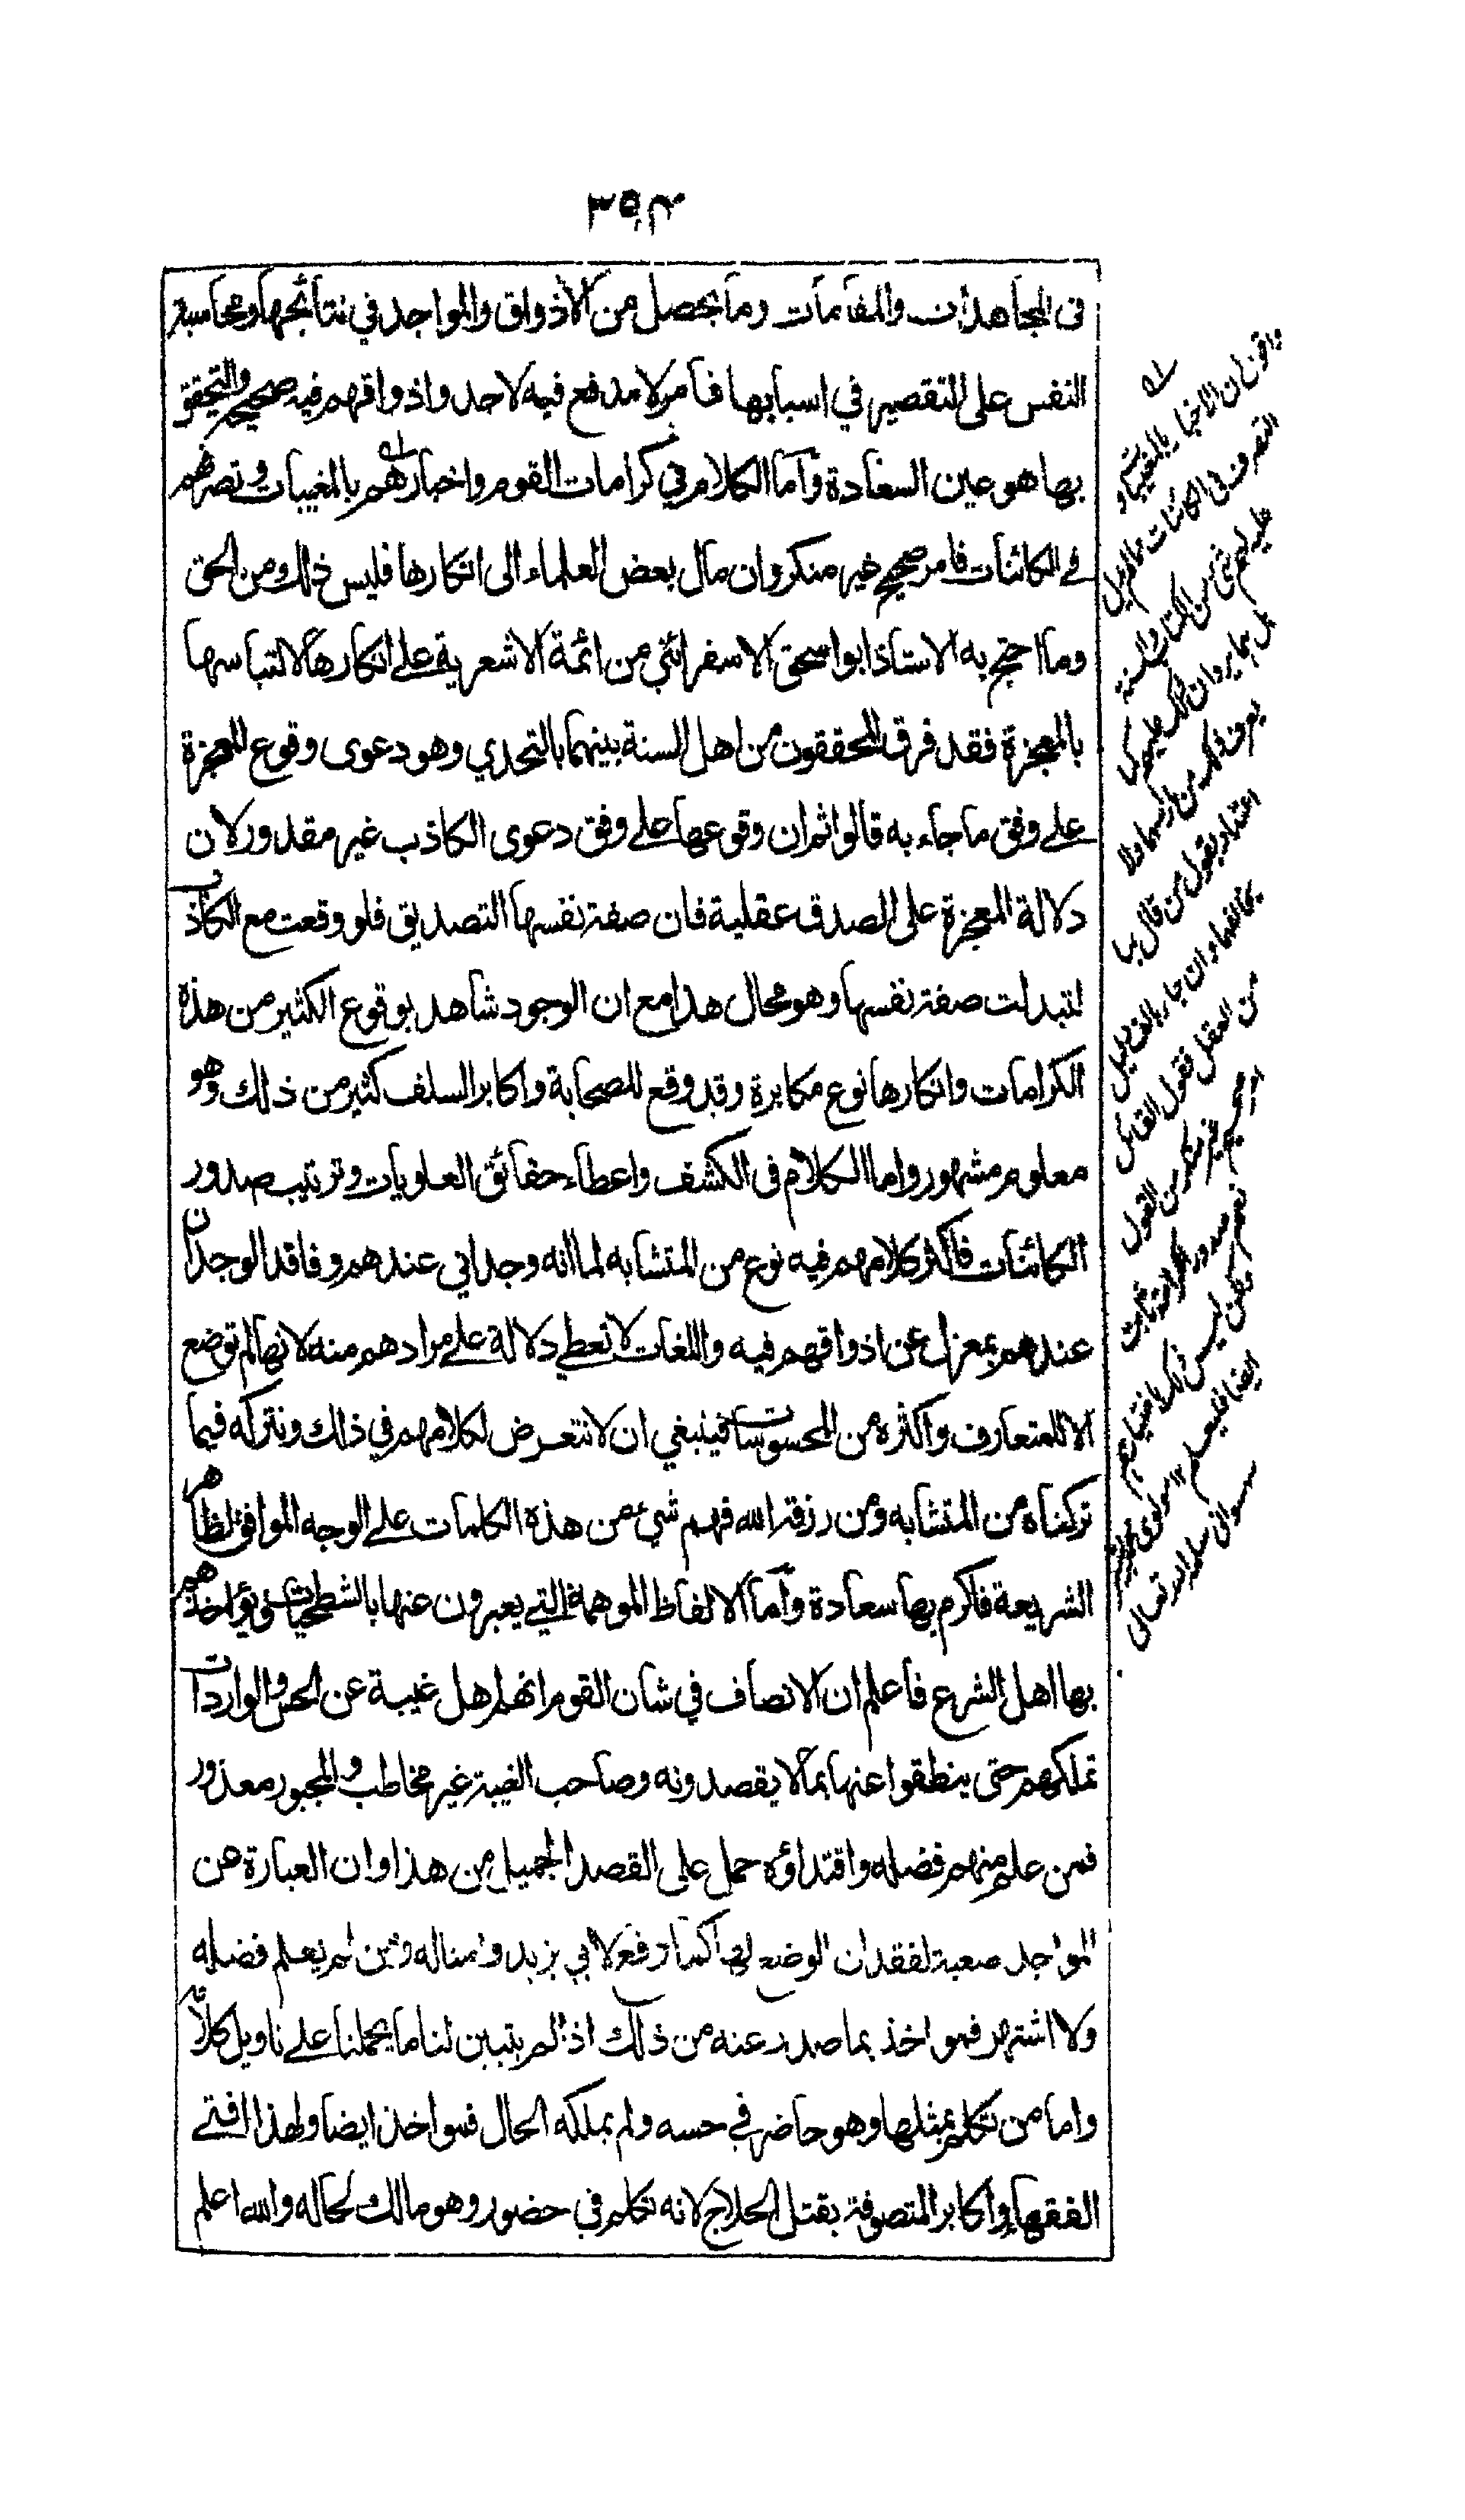 ٣٥٤
في المجاهدات والمقامات وما يحصل من الأذواق والمواجد في نتائجها ومحاسبة
النفس على التقصير في اسبابها فأمر لا مدفع فيه لاحد واذواقهم فيه صحيحة والتحقق
بها هو عين السعادة وأما الكلام في كرامات القوم واخبارهم بالمغيبات وتصرفهم
في الكائنات فامر صحيح غير منكر وان مال بعض العلماء الى انكارها فليس ذلك من الحق
وما احتج به الاستاذ ابو اسحق الاسفرائني من ائمة الاشعرية على انكارها لالتباسها
بالمعجزة فقد فرق المحققون من اهل السنة بينهما بالتحدي وهو دعوى وقوع المعجزة
على وفق ما جاء به قالوا ثم ان وقوعها على وفق دعوى الكاذب غير مقدور لان
دلالة المعجزة على الصدق عقلية فان صفة نفسها التصديق فلو وقعت مع الكاذب
لتبدلت صفة نفسها وهو محال هذا مع ان الوجود شاهد بوقوع الكثير من هذه
الكرامات وانكارها نوع مكابرة وقد وقع للصحابة واكابر السلف كثير من ذلك وهو
معلوم مشهور واما الكلام في الكشف واعطاء حقائق العلويات وترتيب صدور
الكائنات فاكثر كلامهم فيه نوع من المتشابه لما انه وجداني عندهم وفاقد الوجدان
عندهم بمعزل عن اذواقهم فيه واللغات لا تعطي دلالة على مرادهم منه لانها لم توضع
الا للمتعارف واكثره من المحسوسات فينبغي ان لا نتعرض لكلامهم في ذلك ونتركه فيما
تركناه من المتشابه ومن رزقه الله فهم شيء من هذه الكلمات على الوجه الموافق لظاهر
الشريعة فاكرم بها سعادة وأما الالفاظ الموهمة التي يعبرون عنها بالشطحيات ويؤاخذهم
بها اهل الشرع فاعلم ان الانصاف في شان القوم انهم اهل غيبة عن الحس والواردات
تملكهم حتى ينطقوا عنها بما لا يقصدونه وصاحب الغيبة غير مخاطب والمجبور معذور
فمن علم منهم فضله واقتداؤه حمل على القصد الجميل من هذا وان العبارة عن
المواجد صعبة لفقدان الوضع لها كما وقع لابي يزيد وامثاله ومن لم يعلم فضله
ولا اشتهر فمواخذ بما صدر عنه من ذلك اذا لم يتبين لنا ما يحملنا على تاويل كلامه
واما من تكلم بمثلها وهو حاضر في حسه ولم يملكه الحال فمواخذ ايضا ولهذا افتى
الفقهاء واكابر المتصوفة بقتل الحلاج لانه تكلم في حضور وهو مالك لحاله والله اعلم
التصرف في الكائنات مالم يدل
بقول من قال بها
العقل فقول القائل
غير منكر من القول
سلمه الله تعالى